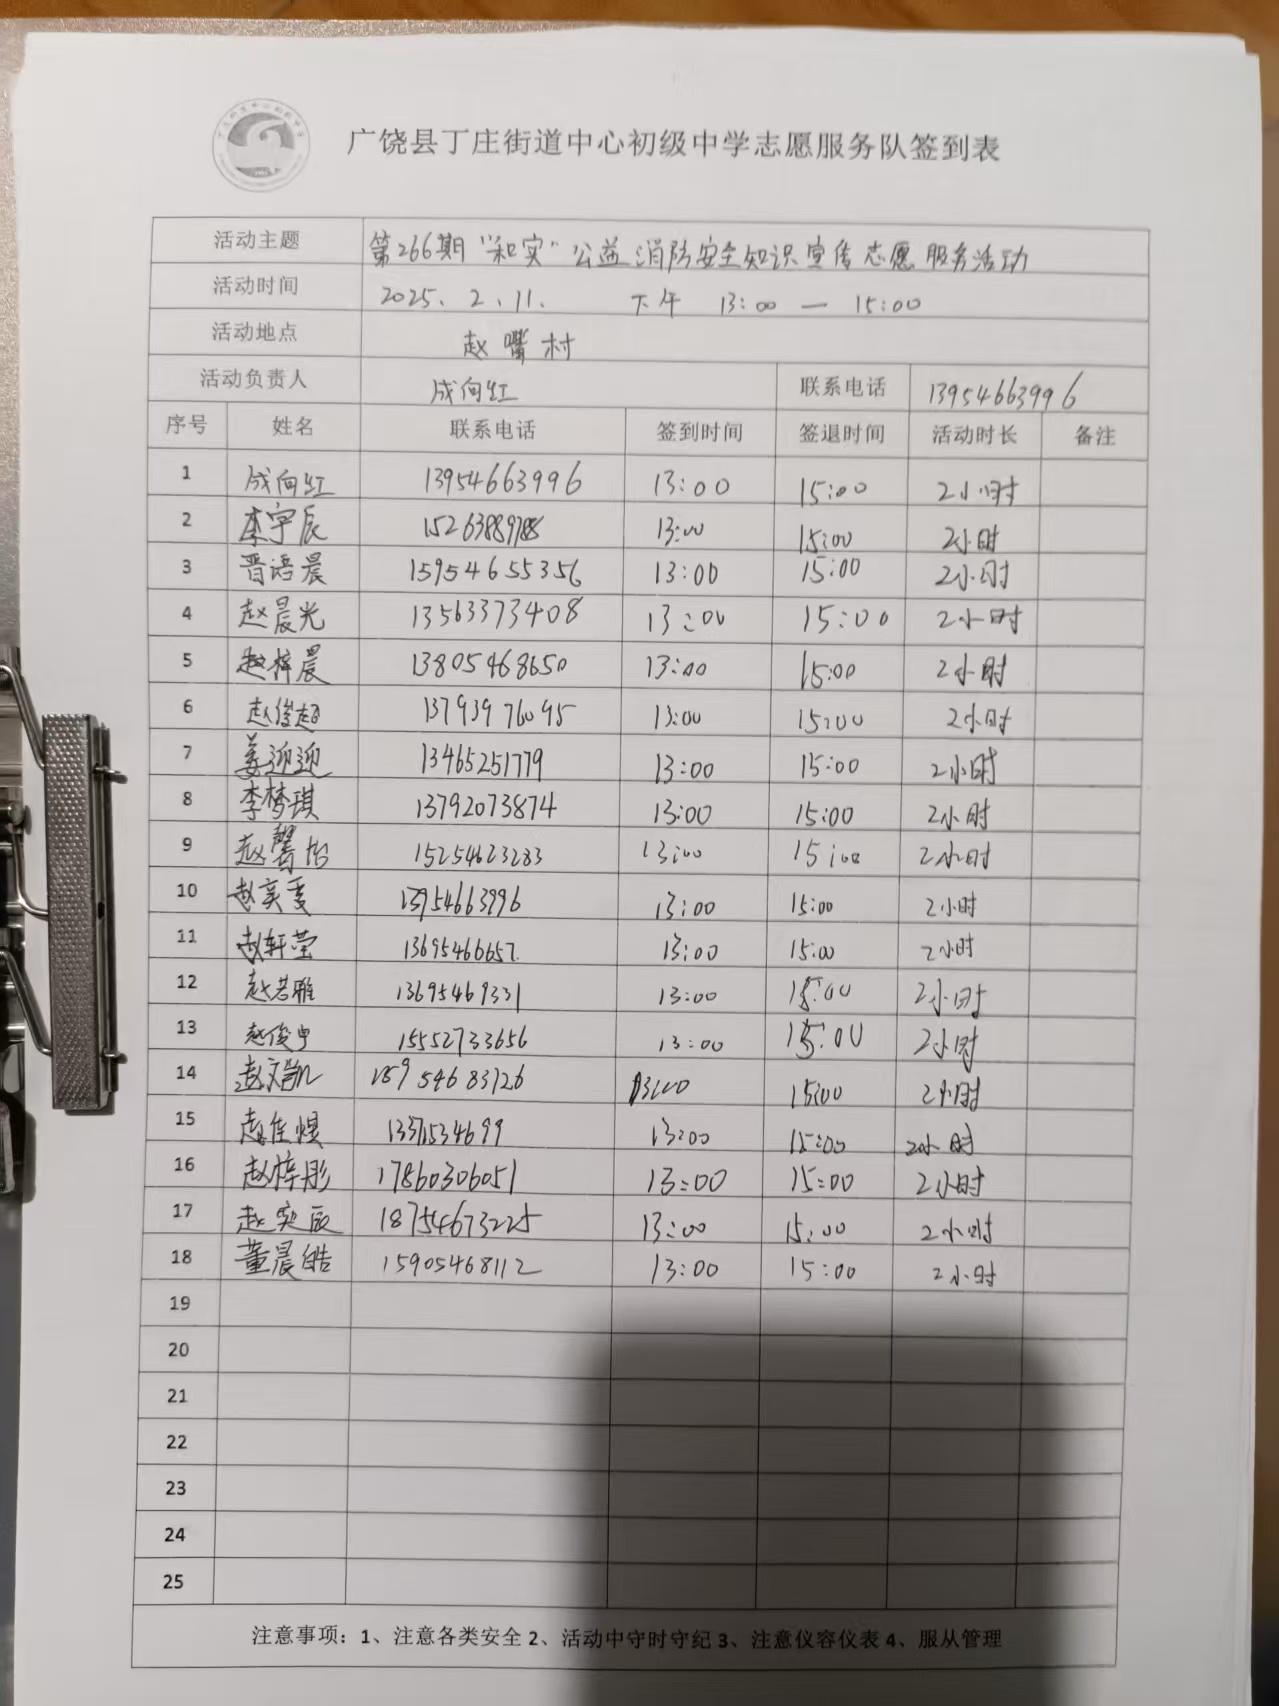 广饶县丁庄街道中心初级中学志愿服务队签到表
活动主题 第266期“和实”公益消防安全知识宣传志愿服务活动
活动时间 2025.2.11. 下午 13:00 — 15:00
活动地点 赵嘴村
活动负责人 成向红 联系电话 13954663996
序号 姓名 联系电话 签到时间 签退时间 活动时长 备注
1 成向红 13954663996 13:00 15:00 2小时
2 李宇辰 15263889788 13:00 15:00 2小时
3 晋语晨 15954655356 13:00 15:00 2小时
4 赵晨光 13563373408 13:00 15:00 2小时
5 赵梓晨 13805468650 13:00 15:00 2小时
6 赵俊超 13793976095 13:00 15:00 2小时
7 姜迎迎 13465251779 13:00 15:00 2小时
8 李梦琪 13792073874 13:00 15:00 2小时
9 赵馨怡 15254623283 13:00 15:00 2小时
10 赵奕雯 13954663996 13:00 15:00 2小时
11 赵轩莹 13695466657. 13:00 15:00 2小时
12 赵若雅 13695469331 13:00 15:00 2小时
13 赵俊宇 15552733656 13:00 15:00 2小时
14 赵文凯 15954683126 13:00 15:00 2小时
15 赵佳煜 13:00 15:00 2小时
16 赵梓彤 17860306051 13:00 15:00 2小时
17 赵奕辰 18754673225 13:00 15:00 2小时
18 董晨皓 15905468112 13:00 15:00 2小时
19
20
21
22
23
24
25
注意事项：1、注意各类安全 2、活动中守时守纪 3、注意仪容仪表 4、服从管理